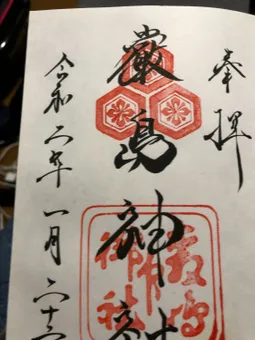 奉拝
厳島神社
令和二年一月六十
嚴島
神社